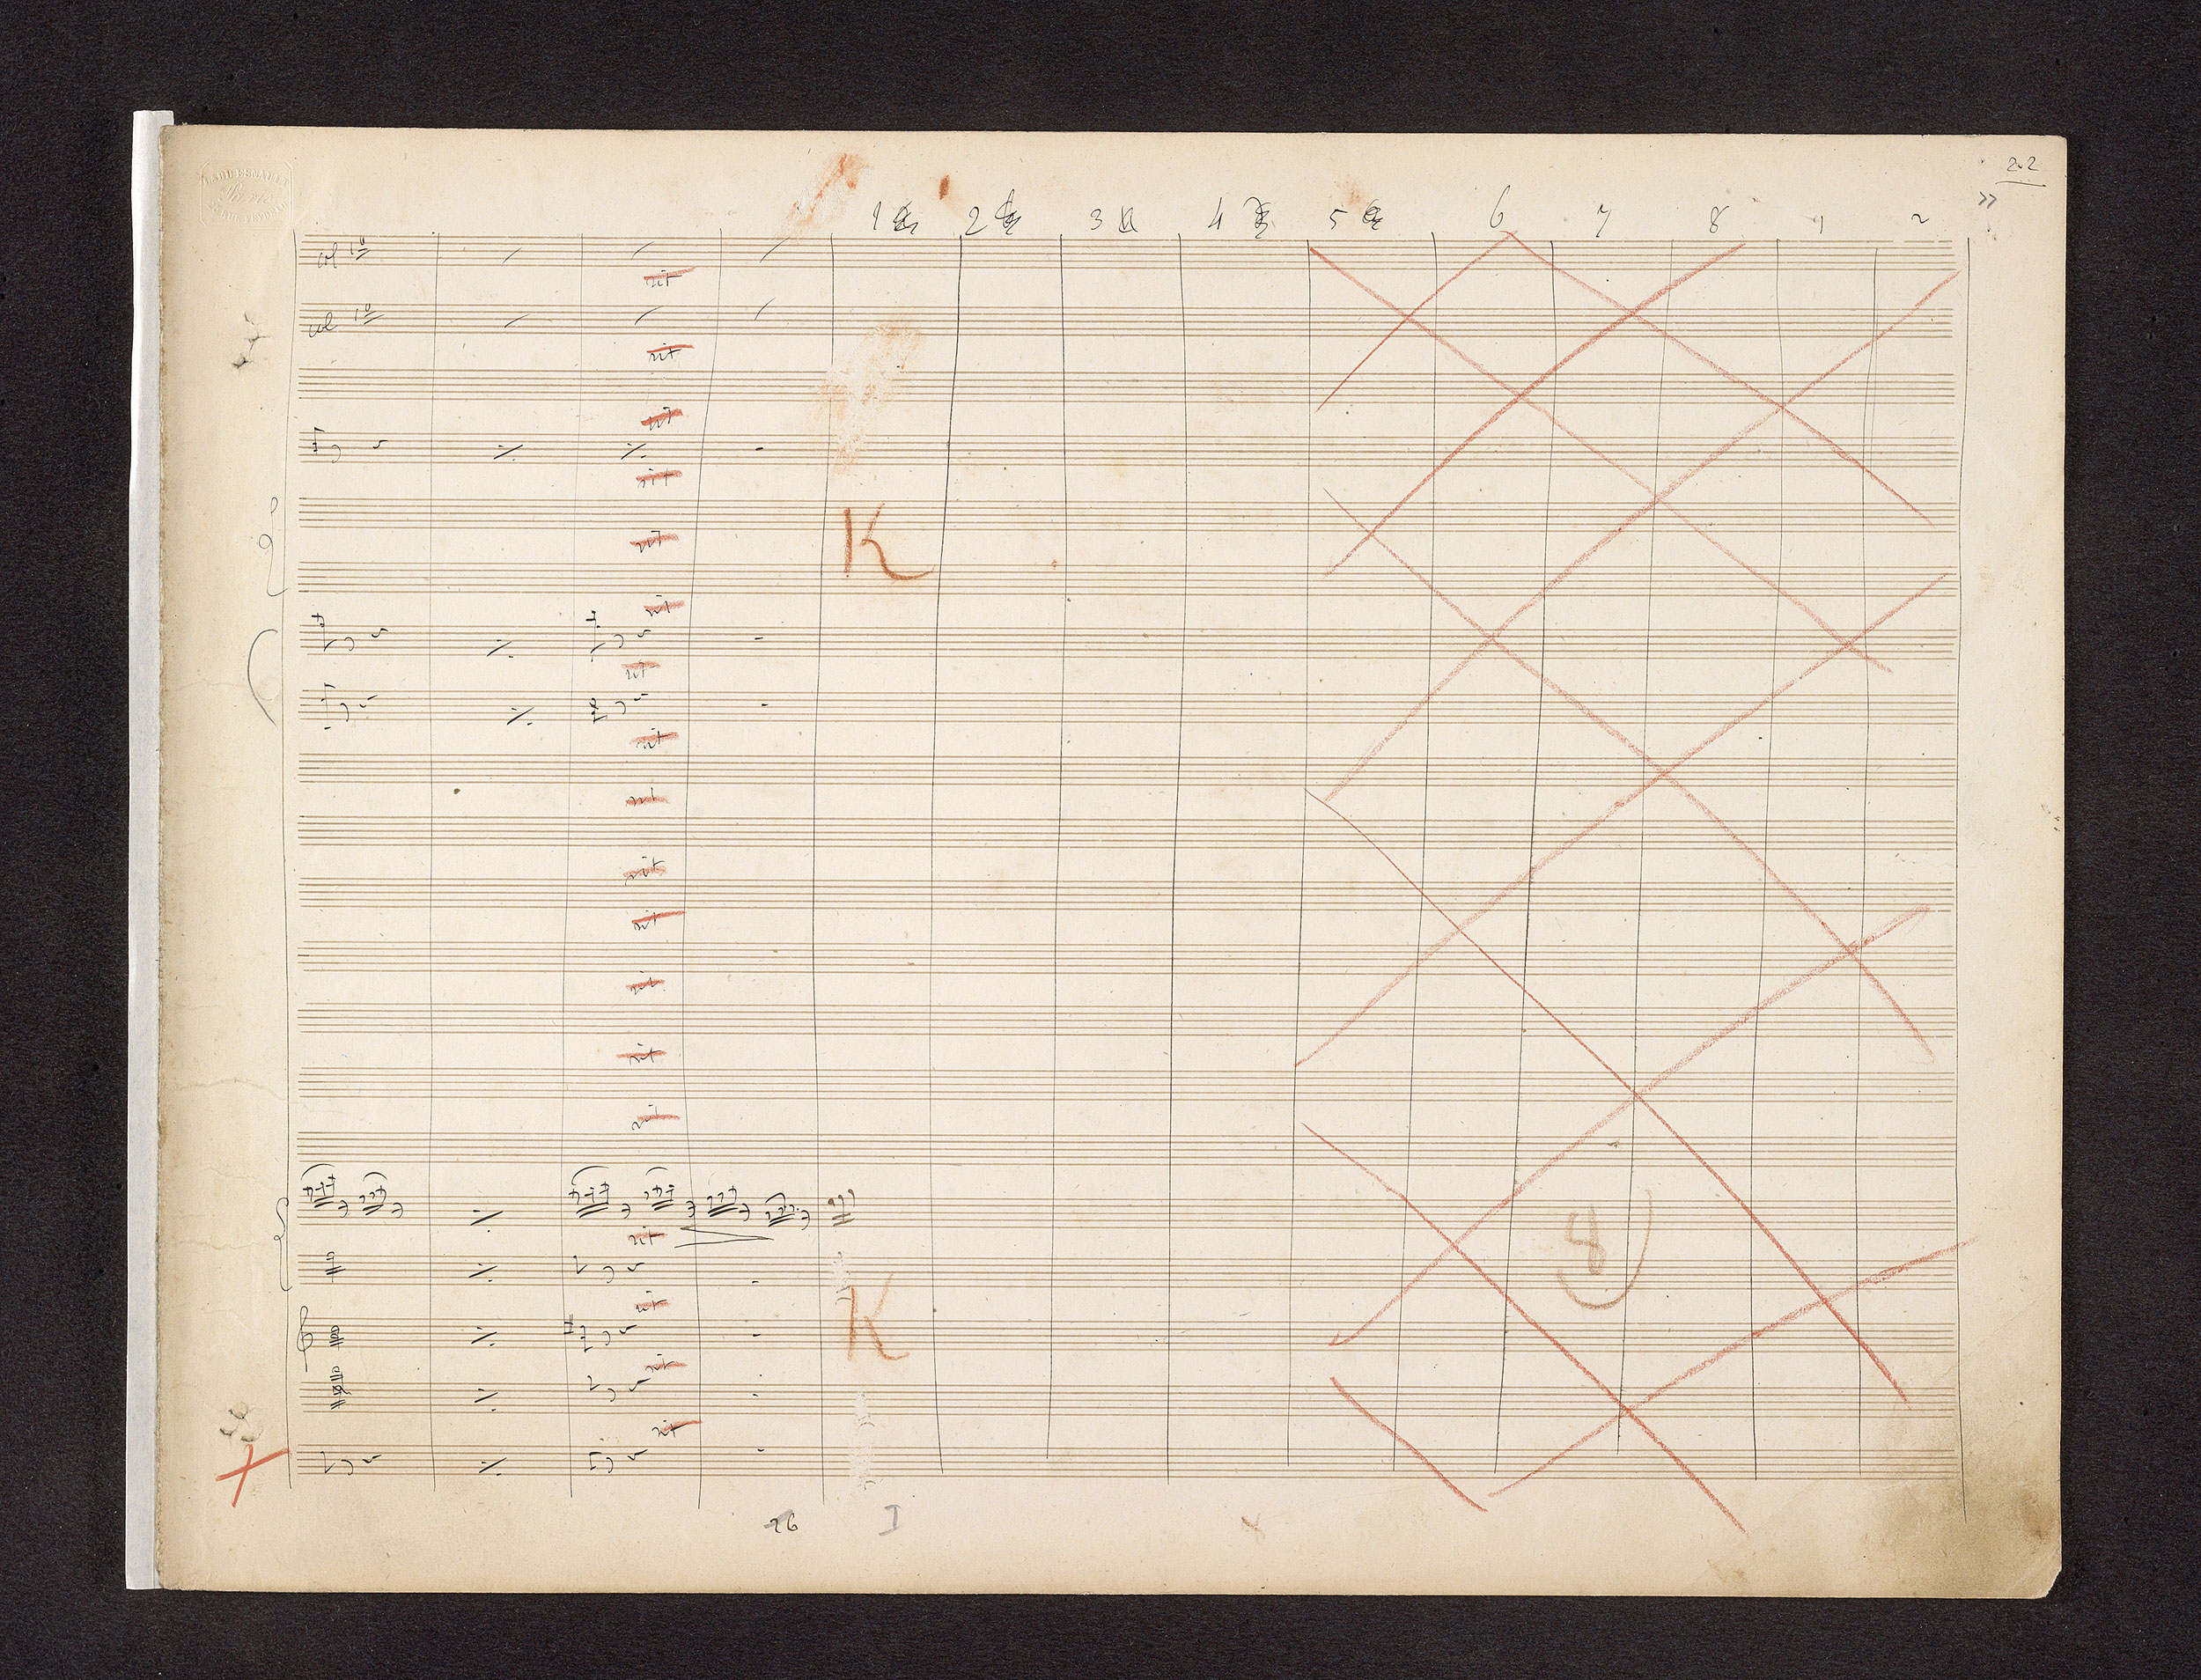 22
LARD ESNAULT
Paris
1 2 3 4 5 6 7 8 1 2 »
col 1º
rit
col 1º
rit
rit
rit
K
rit
rit
rit
rit
rit
rit
rit
rit
rit
rit
rit
8
rit
K
rit
rit
26 I